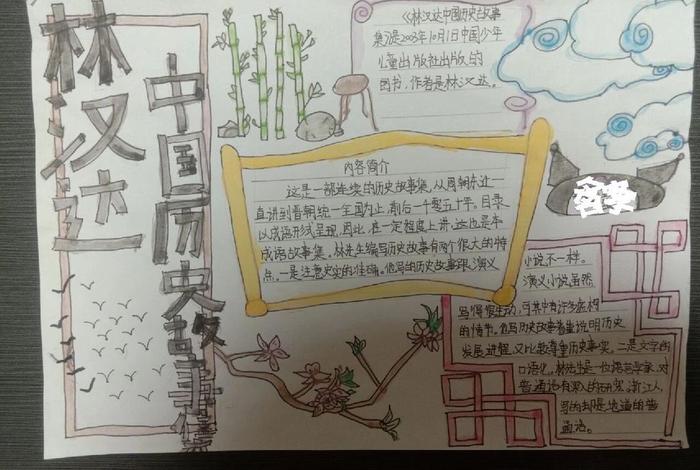 林汉达
中国历史故事集
《林汉达中国历史故事
集》是2003年10月1日中国少年
儿童出版社出版的
图书,作者是林汉达。
内容简介
这是一部连续的历史故事集,从周朝东迁一
直讲到晋朝统一全国为止,前后一千零五十年。目录
以成语形式呈现,因此,在一定程度上讲,这也是本
成语故事集。林先生编写历史故事有两个很大的特
点。一是注意史实的准确。他写的历史故事跟演义
小说不一样。
演义小说虽然
写得很生动,可其中有许多虚构
的情节。他写历史故事着重说明历史
发展进程,又比较尊重历史事实。二是文字的
口语化。林先生是一位语言学家,对
普通话有深入的研究。浙江人,
写的却是地道的普
通话。